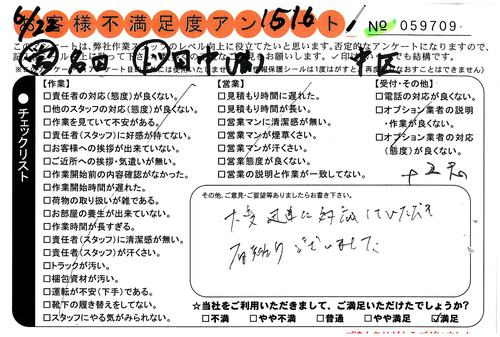 お客様不満足度アンケート
1516
6/22
№ 059709
このアンケートは、弊社作業スタッフのレベル向上に役立てたいと思います。否定的なアンケートになりますので、
中区
【作業】
□責任者の対応(態度)が良くない。
□他のスタッフの対応(態度)が良くない。
□作業を見ていて不安がある。
□責任者(スタッフ)に好感が持てない。
□お客様への挨拶が出来ていない。
□ご近所への挨拶・気遣いが無い。
□作業開始前の内容確認がなかった。
□作業開始時間が遅れた。
□荷物の取り扱いが雑である。
□お部屋の養生が出来ていない。
□作業時間が長すぎる。
□責任者(スタッフ)に清潔感が無い。
□責任者(スタッフ)が汗くさい。
□トラックが汚い。
□梱包資材が汚い。
□運転が不安(下手)である。
□靴下の履き替えをしてない。
□スタッフにやる気がみられない。
【営業】
□見積もり時間に遅れた。
□見積もり時間が長い。
□営業マンに清潔感が無い。
□営業マンが煙草くさい。
□営業マンが汗くさい。
□営業態度が良くない。
□営業の説明と作業が一致してない。
【受付・その他】
□電話の対応が良くない。
□オプション業者の説明
・作業が良くない。
□オプション業者の対応
(態度)が良くない。
チェックリスト
その他、ご意見・ご要望等ありましたらお書き下さい。
大変迅速に対応していただき
有難うございました
☆当社をご利用いただきまして、ご満足いただけたでしょうか?
□不満 □やや不満 □普通 □やや満足 ☑満足